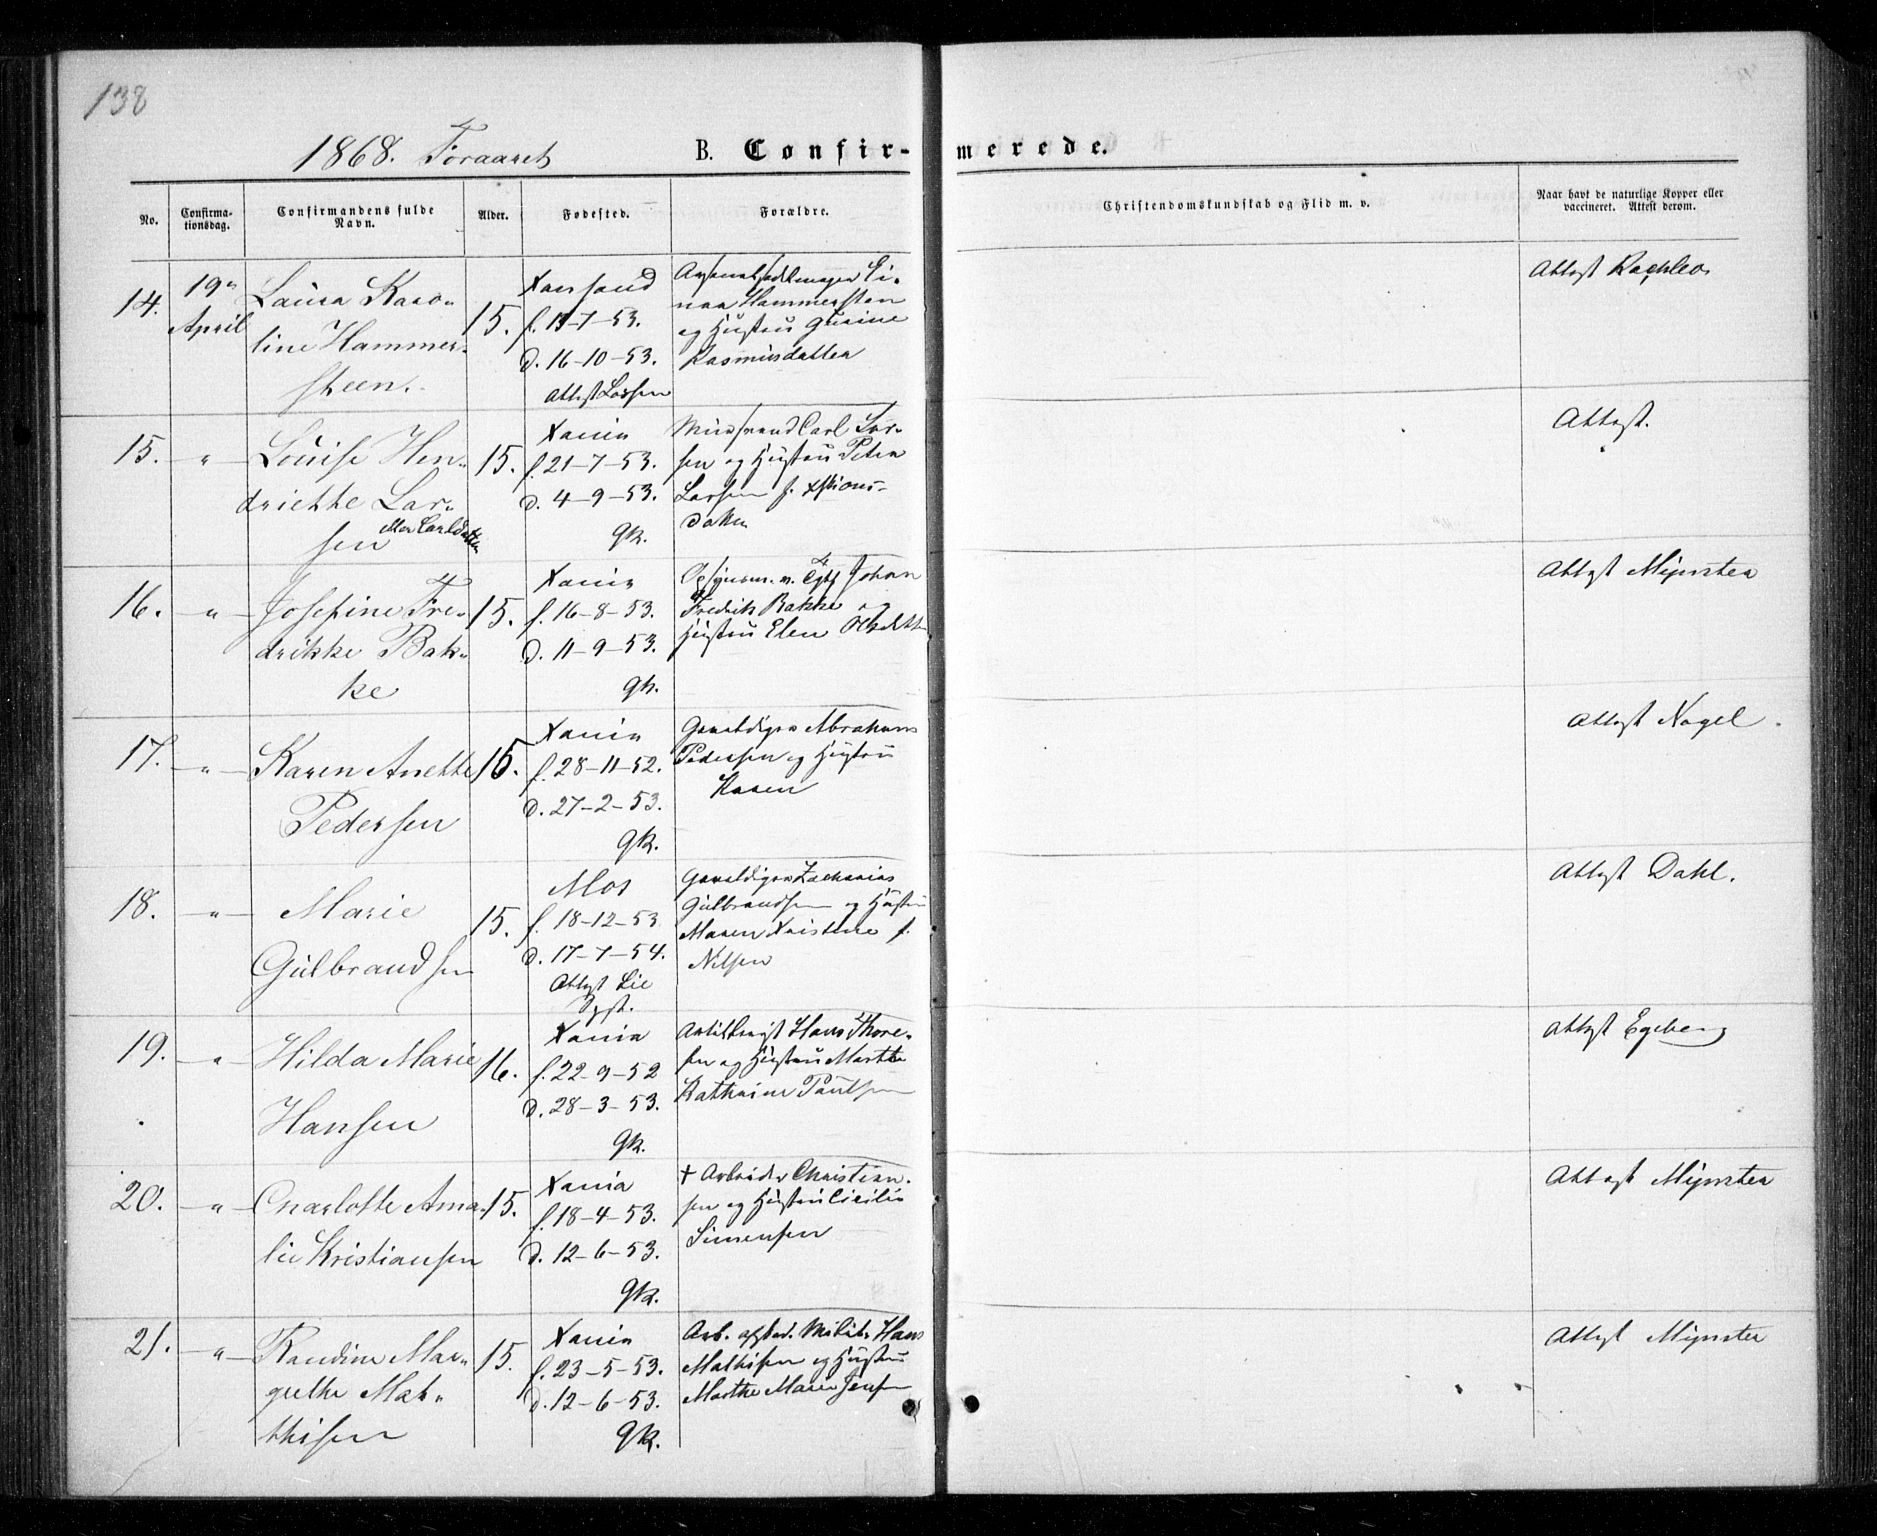 138
1868. Foraaret
B. Confir-
merede.
No.
Confirma-
tionsdag.
Confirmandens fulde
Navn.
Alder.
Fødested.
Forældre.
Christendomskundskab og Flid m. v.
Naar havt de naturlige Kopper eller
vaccineret. Attest derom.
14.
19de
April
Laura Karo-
line Hammer-
steen.
15.
Xansand
f. 13-7-53.
d. 16-10-53.
Attest Lassen
Hammersteen
og Hustru Gurine
Rasmusdatter
Attest
15.
"
Louise Hen-
driette Lar-
sen eller Carlsdatter
15.
Xania
f. 21-7-53.
d. 4-9-53.
gk.
Muursvend Carl Lar-
sen og Hustru Petra
Larsen f.
datter
Attest.
16.
"
Josefine Fre-
drikke Bak-
ke
15.
Xania
f. 16-8-53.
d. 11-9-53.
gk.
Johan
Fredrik Bakke og
Hustru Elen
Attest Mynster
17.
"
Karen Anette
Pedersen
15.
Xania
f. 28-11-52.
d. 27-2-53.
gk.
Gevaldiger Abraham
Pedersen og Hustru
Karen
Attest Nagel.
18.
"
Marie
Gulbrandsen
15.
Mos
f. 18-12-53
d. 17-7-54.
Attest Lie
Gevaldiger Zacharias
Gulbrandsen og Hustru
Maren Kristine f.
Nilsen
Attest Dahl.
19.
"
Hilda Marie
Hansen
16.
Xania
f. 22-9-52
d. 28-3-53.
gk.
Hans Thore-
sen og Hustru Marthe
Kathrine Paulsen
Attest Egeberg
20.
"
Charlotte Ama-
lie Kristiansen
15.
Xania
f. 18-4-53.
d. 12-6-53.
gk.
† Arbeider Christian-
sen og Hustru Cicilie
Simensen
Attest Mynster
21.
"
Randine Mar-
grethe Mat-
thisen
15.
Xania
f. 23-5-53.
d. 12-6-53.
gk.
Arb. Hans
Mathisen og Hustru
Marthe Marie Jensen
Attest Mynster